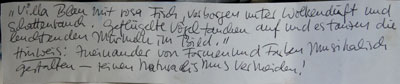 "Villa Blau mit rosa Fisch, verborgen unter Wolkenduft und
Schattenbaum. Geflügelte Vögel tauchen auf und es tanzen die
leuchtenden im Bild."
Hinweis: Ineinander von Formen und Farben musikalisch
gestalten – reinen Naturalismus vermeiden!